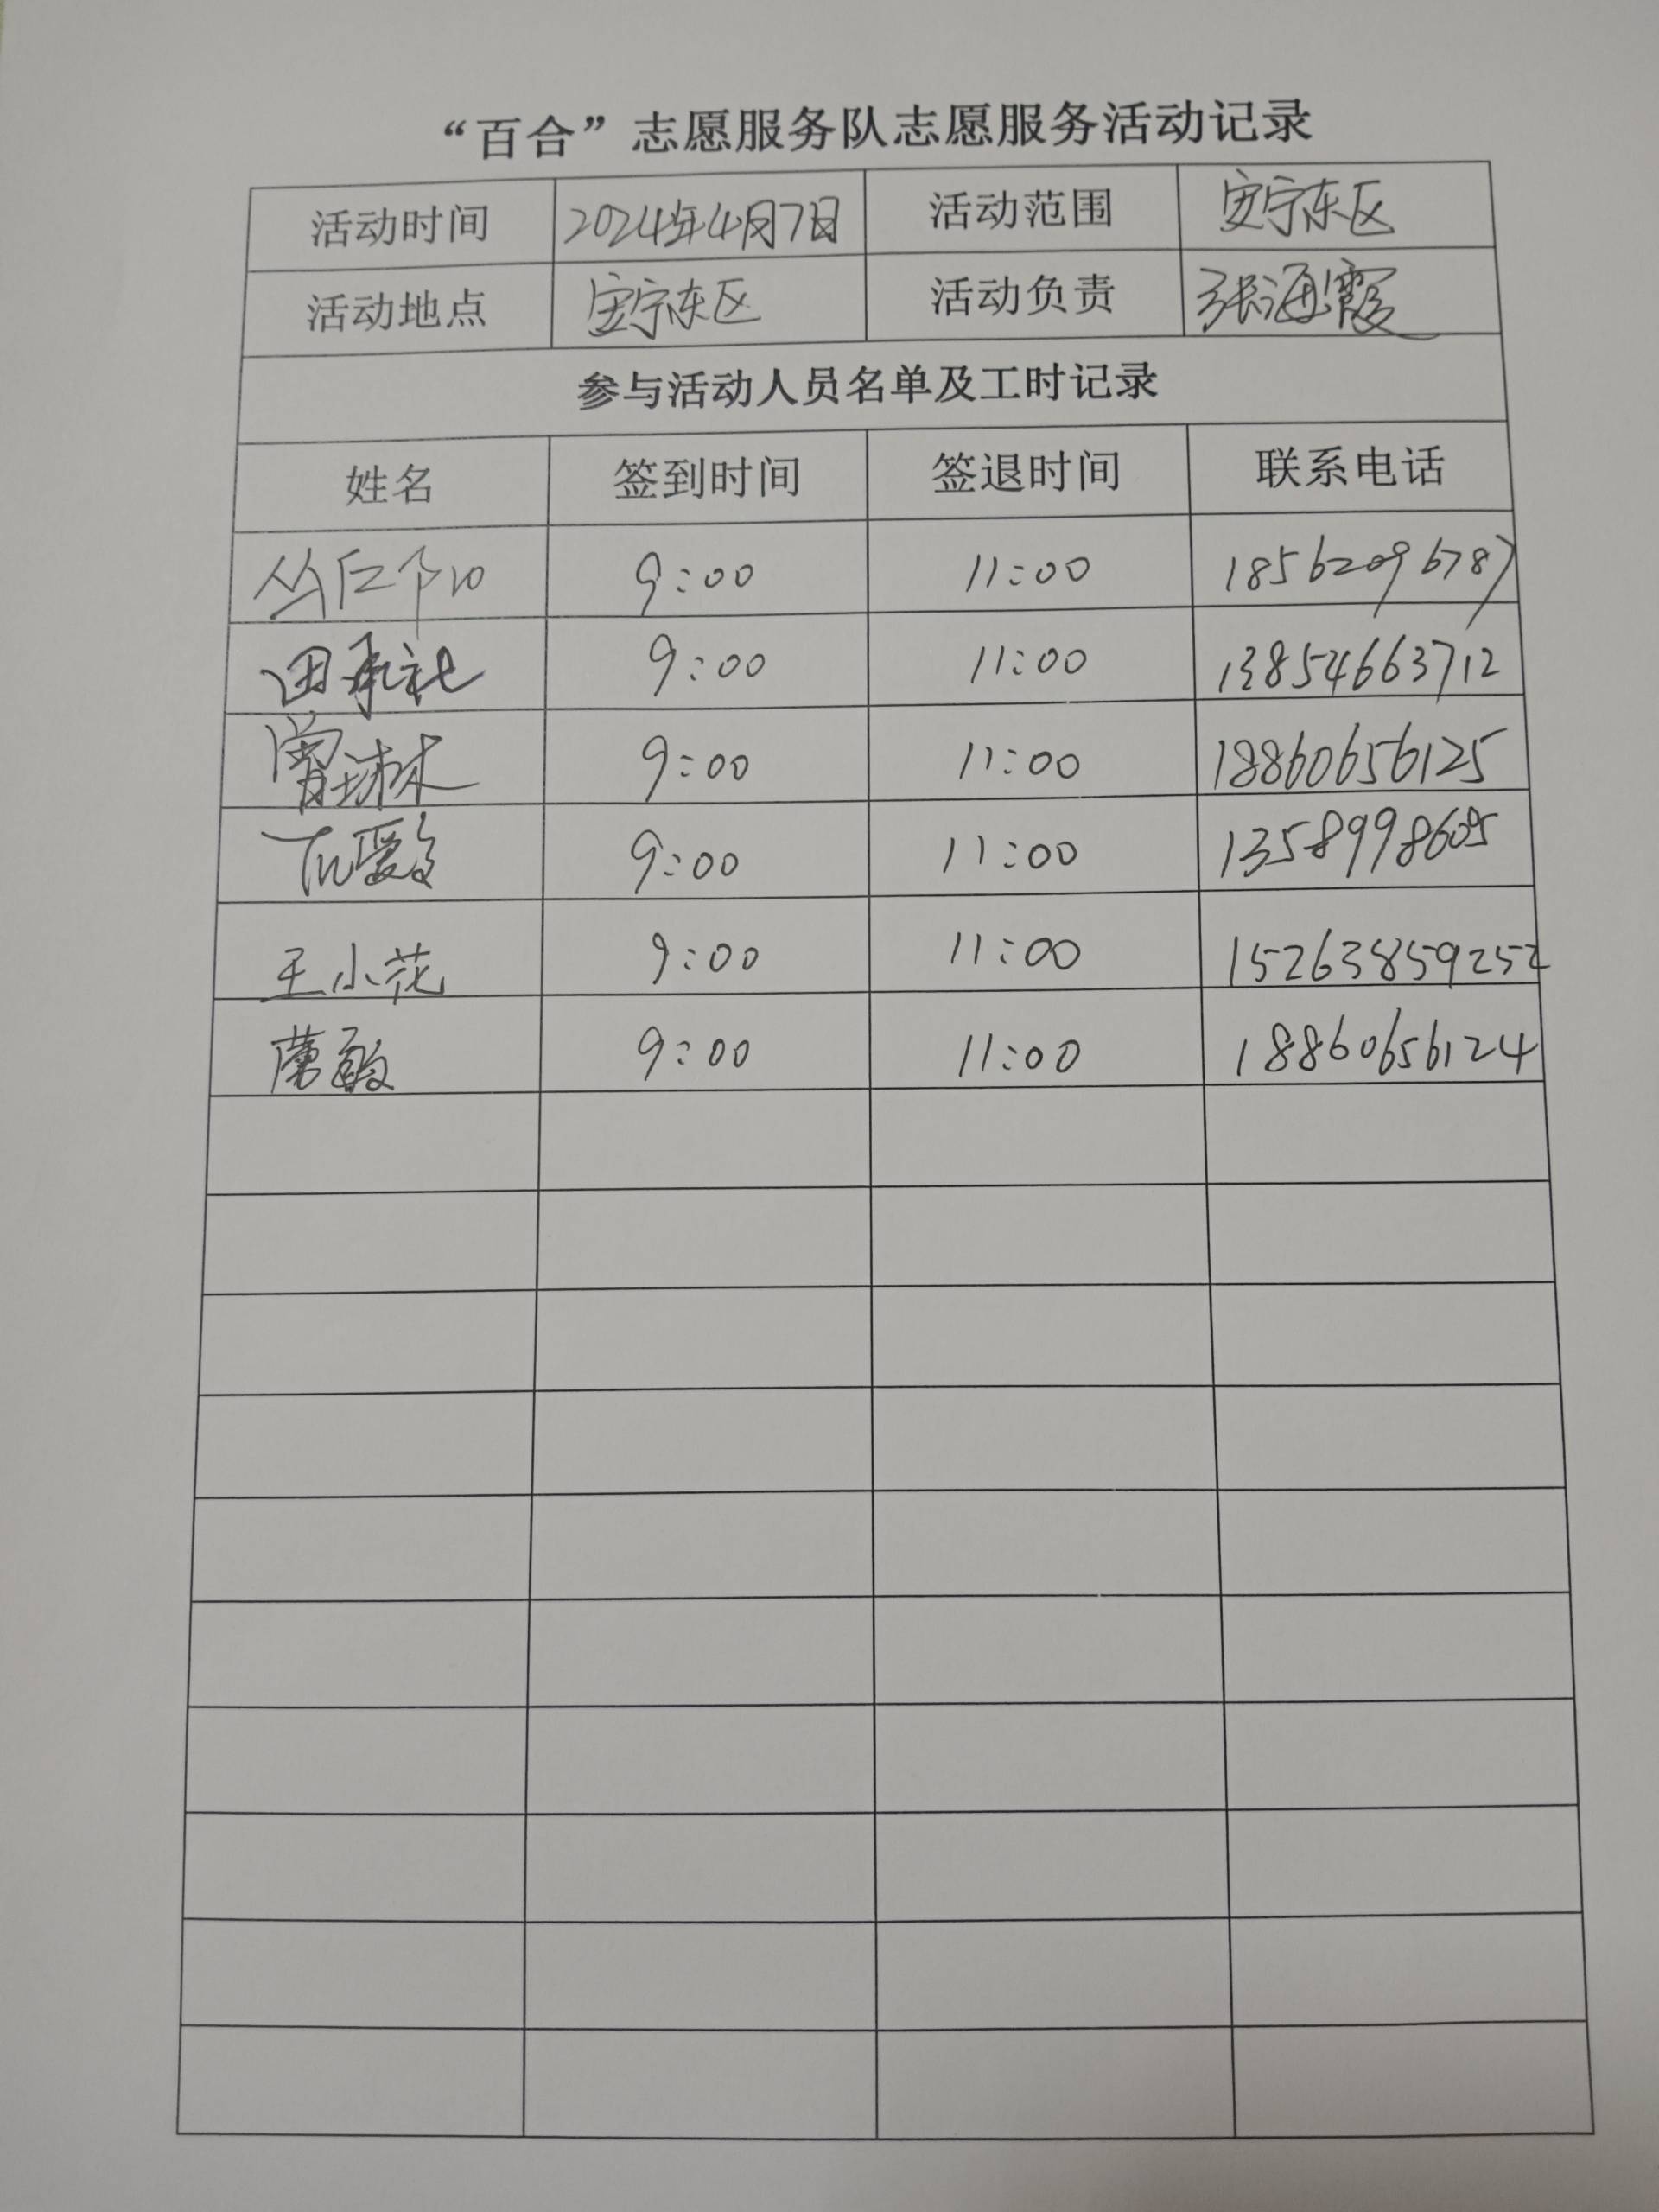 “百合”志愿服务队志愿服务活动记录
活动时间 2024年4月7日 活动范围 安宁东区
活动地点 安宁东区 活动负责 张海霞
参与活动人员名单及工时记录
姓名 签到时间 签退时间 联系电话
9:00 11:00 18562096787
田承社 9:00 11:00 13854663712
9:00 11:00 18860656125
9:00 11:00 13589998605
王小花 9:00 11:00 15263859252
9:00 11:00 18860656124